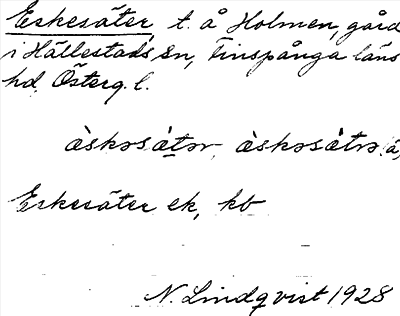 Eskesäter, t. å Holmen, gård
i Hällestads sn, Finspånga läns
hd, Österg. l.
àskosátər, àskosátrə
Eskesäter ek, kb
N. Lindqvist 1928